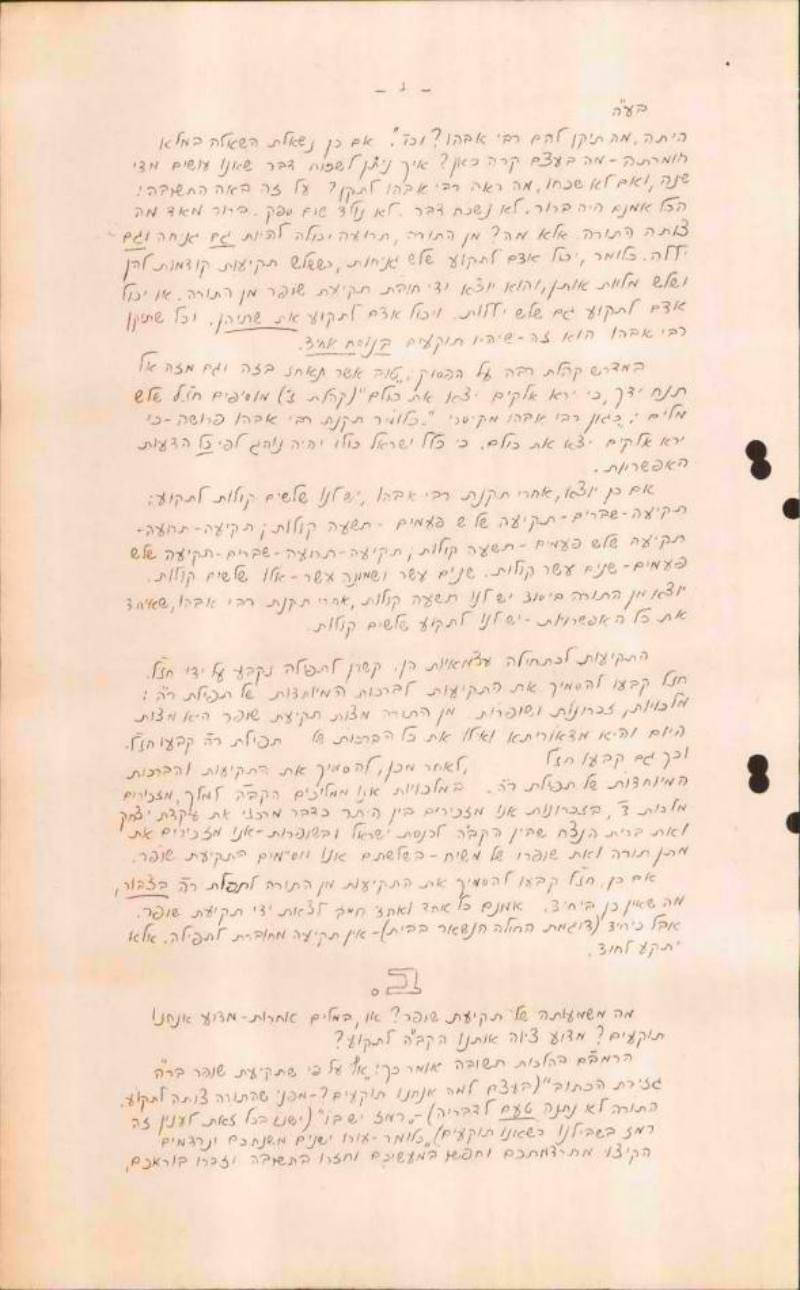 בע"ה
היתה. מה תיקן להם רבי אבהו? וכו'." אם כן נשאלת השאלה במלא
חומרתה - מה בעצם קרה כאן? איך ניתן לשכוח דבר שאנו עושים מדי
שנה, ואם לא שכחו, מה ראה רבי אבהו לתקן? על זה באה התשובה:
הכל אמנם היה ברור. לא נשכח דבר. לא נולד שום ספק. ברור מאד מה
צותה התורה. אלא מה? מן התורה, תרועה יכולה להיות גם גניחה וגם
יללה. כלומר, יכול אדם לתקוע שלש גניחות, כששלש תקיעות קודמות להן
ושלש מלוות אותן, והוא יוצא ידי חובת תקיעת שופר מן התורה. או יכול
אדם לתקוע גם שלש יללות. ויכול אדם לתקוע את שתיהן. וכל שתיקן
רבי אבהו הוא זה - שיהיו תוקעים בנוסח אחד.
במדרש קהלת רבה על הפסוק: "טוב אשר תאחז בזה וגם מזה אל
תנח ידך, כי ירא אלקים יצא את כולם" (קהלת ז') מוסיפים חז"ל שלש
מלים: "כגון רבי אבהו מקיסרי". כלומר תקנת רבי אבהו פרושה - כי
ירא אלקים יצא את כולם. כי כלל ישראל כולו יהיה נוהג לפי כל הדעות
האפשריות.
אם כן יוצא, אחרי תקנת רבי אבהו, יש לנו שלשים קולות לתקוע:
תקיעה-שברים-תקיעה שלש פעמים - תשעה קולות; תקיעה-תרועה-
תקיעה שלש פעמים - תשעה קולות, תקיעה-תרועה-שברים-תקיעה שלש
פעמים - שנים עשר קולות. שנים עשר ושמונה עשר - אלו שלשים קולות.
יוצא מן התורה ביסוד יש לנו תשעה קולות, אחרי תקנת רבי אבהו, שאיחד
את כל האפשרויות - יש לנו לתקוע שלשים קולות.
התקיעות לכתחילה עצמאיות הן. קשרן לתפילה נקבע על ידי חז"ל.
חז"ל קבעו להסמיך את התקיעות לברכות המיוחדות של תפילת ר"ה:
מלכויות, זכרונות ושופרות. מן התורה מצות תקיעת שופר היא מצות
היום והיא מדאוריתא ואילו את כל הברכות של תפילת ר"ה קבעו חז"ל.
וכך גם קבעו חז"ל, לאחר מכן, להסמיך את התקיעות והברכות
המיוחדות של תפילת ר"ה. במלכויות אנו ממליכים הקב"ה למלך, מזכירים
מלכות ד', בזכרונות אנו מזכירים בין היתר כדבר מרכזי את עקדת יצחק
ואת ברית הנצח שבין הקב"ה לכנסת ישראל ובשופרות - אנו מזכירים את
מתן תורה ואת שופרו של משיח - בשלשתם אנו מסימים בתקיעת שופר.
אם כן, חז"ל קבעו להסמיך את התקיעות מן התורה לתפלת ר"ה בצבור,
מה שאין כן ביחיד. אמנם כל אחד ואחד חייב לצאת ידי תקיעת שופר.
אבל ביחיד (דוגמת החולה הנשאר בבית) - אין תקיעה מחוברת לתפילה. אלא
יתקע לחוד.
ב.
מה משמעותה של תקיעת שופר? או, במלים אחרות - מדוע אנחנו
תוקעים? מדוע ציוה אותנו הקב"ה לתקוע?
הרמב"ם בהלכות תשובה אומר כך: "אף על פי שתקיעת שופר בר"ה
גזירת הכתוב" (בעצם למה אנחנו תוקעים? - מפני שהתורה צותה לתקוע.
התורה לא נתנה טעם לדבריה) - "רמז יש בו" (ישנו בכל זאת לענין זה
רמז בשבילנו כשאנו תוקעים) "כלומר - עורו ישנים משנתכם ונרדמים
הקיצו מתרדמתכם וחפשו במעשיכם וחזרו בתשובה וזכרו בוראכם,